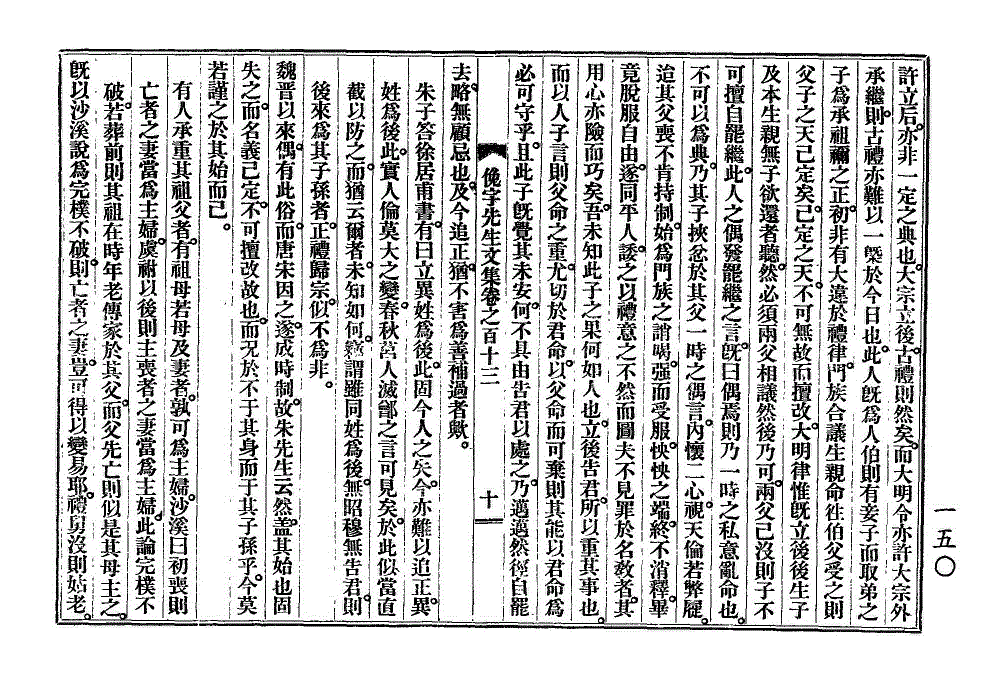 許立后。亦非一定之典也。大宗立後。古禮則然矣。而大明令亦許大宗外
承繼。則古禮亦難以一槩於今日也。此人旣爲人伯則有妾子而取弟之
子爲承祖禰之正。初非有大違於禮律。門族合議生親命徃伯父受之則
父子之天已定矣。已定之天。不可無故而擅改。大明律惟旣立後後生子
及本生親無子欲還者聽。然必須兩父相議然後乃可。兩父已沒則子不
可擅自罷繼。此人之偶發罷繼之言。旣曰偶焉則乃一時之私意亂命也。
不可以爲典。乃其子挾忿於其父一時之偶言。內懷二心。視天倫若弊屣。
迨其父喪不肯持制。始爲門族之誚喝。强而受服。怏怏之端。終不消釋。畢
竟脫服自由。遂同平人。諉之以禮意之不然而圖夫不見罪於名敎者。其
用心亦險而巧矣。吾未知此子之果何如人也。立後告君。所以重其事也。
而以人子言則父命之重。尤切於君命。以父命而可棄則其能以君命爲
必可守乎。且此子旣覺其未安。何不具由告君以處之。乃邁邁然徑自罷
俛宇先生文集卷之百十三
十
去。略無顧忌也。及今追正。猶不害爲善補過者歟。
朱子答徐居甫書。有曰立異姓爲後。此固今人之失。今亦難以追正。異
姓爲後。此實人倫莫大之變。春秋莒人滅鄫之言可見矣。於此似當直
截以防之。而猶云爾者。未知如何。竊謂雖同姓爲後。無昭穆無告君則
後來爲其子孫者。正禮歸宗。似不爲非。
魏晋以來。偶有此俗。而唐宋因之。遂成時制。故朱先生云然。盖其始也固
失之。而名義已定。不可擅改故也。而况於不于其身而于其子孫乎。今莫
若謹之於其始而已。
有人承重其祖父者。有祖母若母及妻者。孰可爲主婦。沙溪曰初喪則
亡者之妻當爲主婦。虞祔以後則主喪者之妻當爲主婦。此論完樸不
破。若葬前則其祖在時年老傳家於其父。而父先亡則似是其母主之。
旣以沙溪說爲完樸不破。則亡者之妻。豈可得以變易耶。禮舅沒則姑老。
一五〇